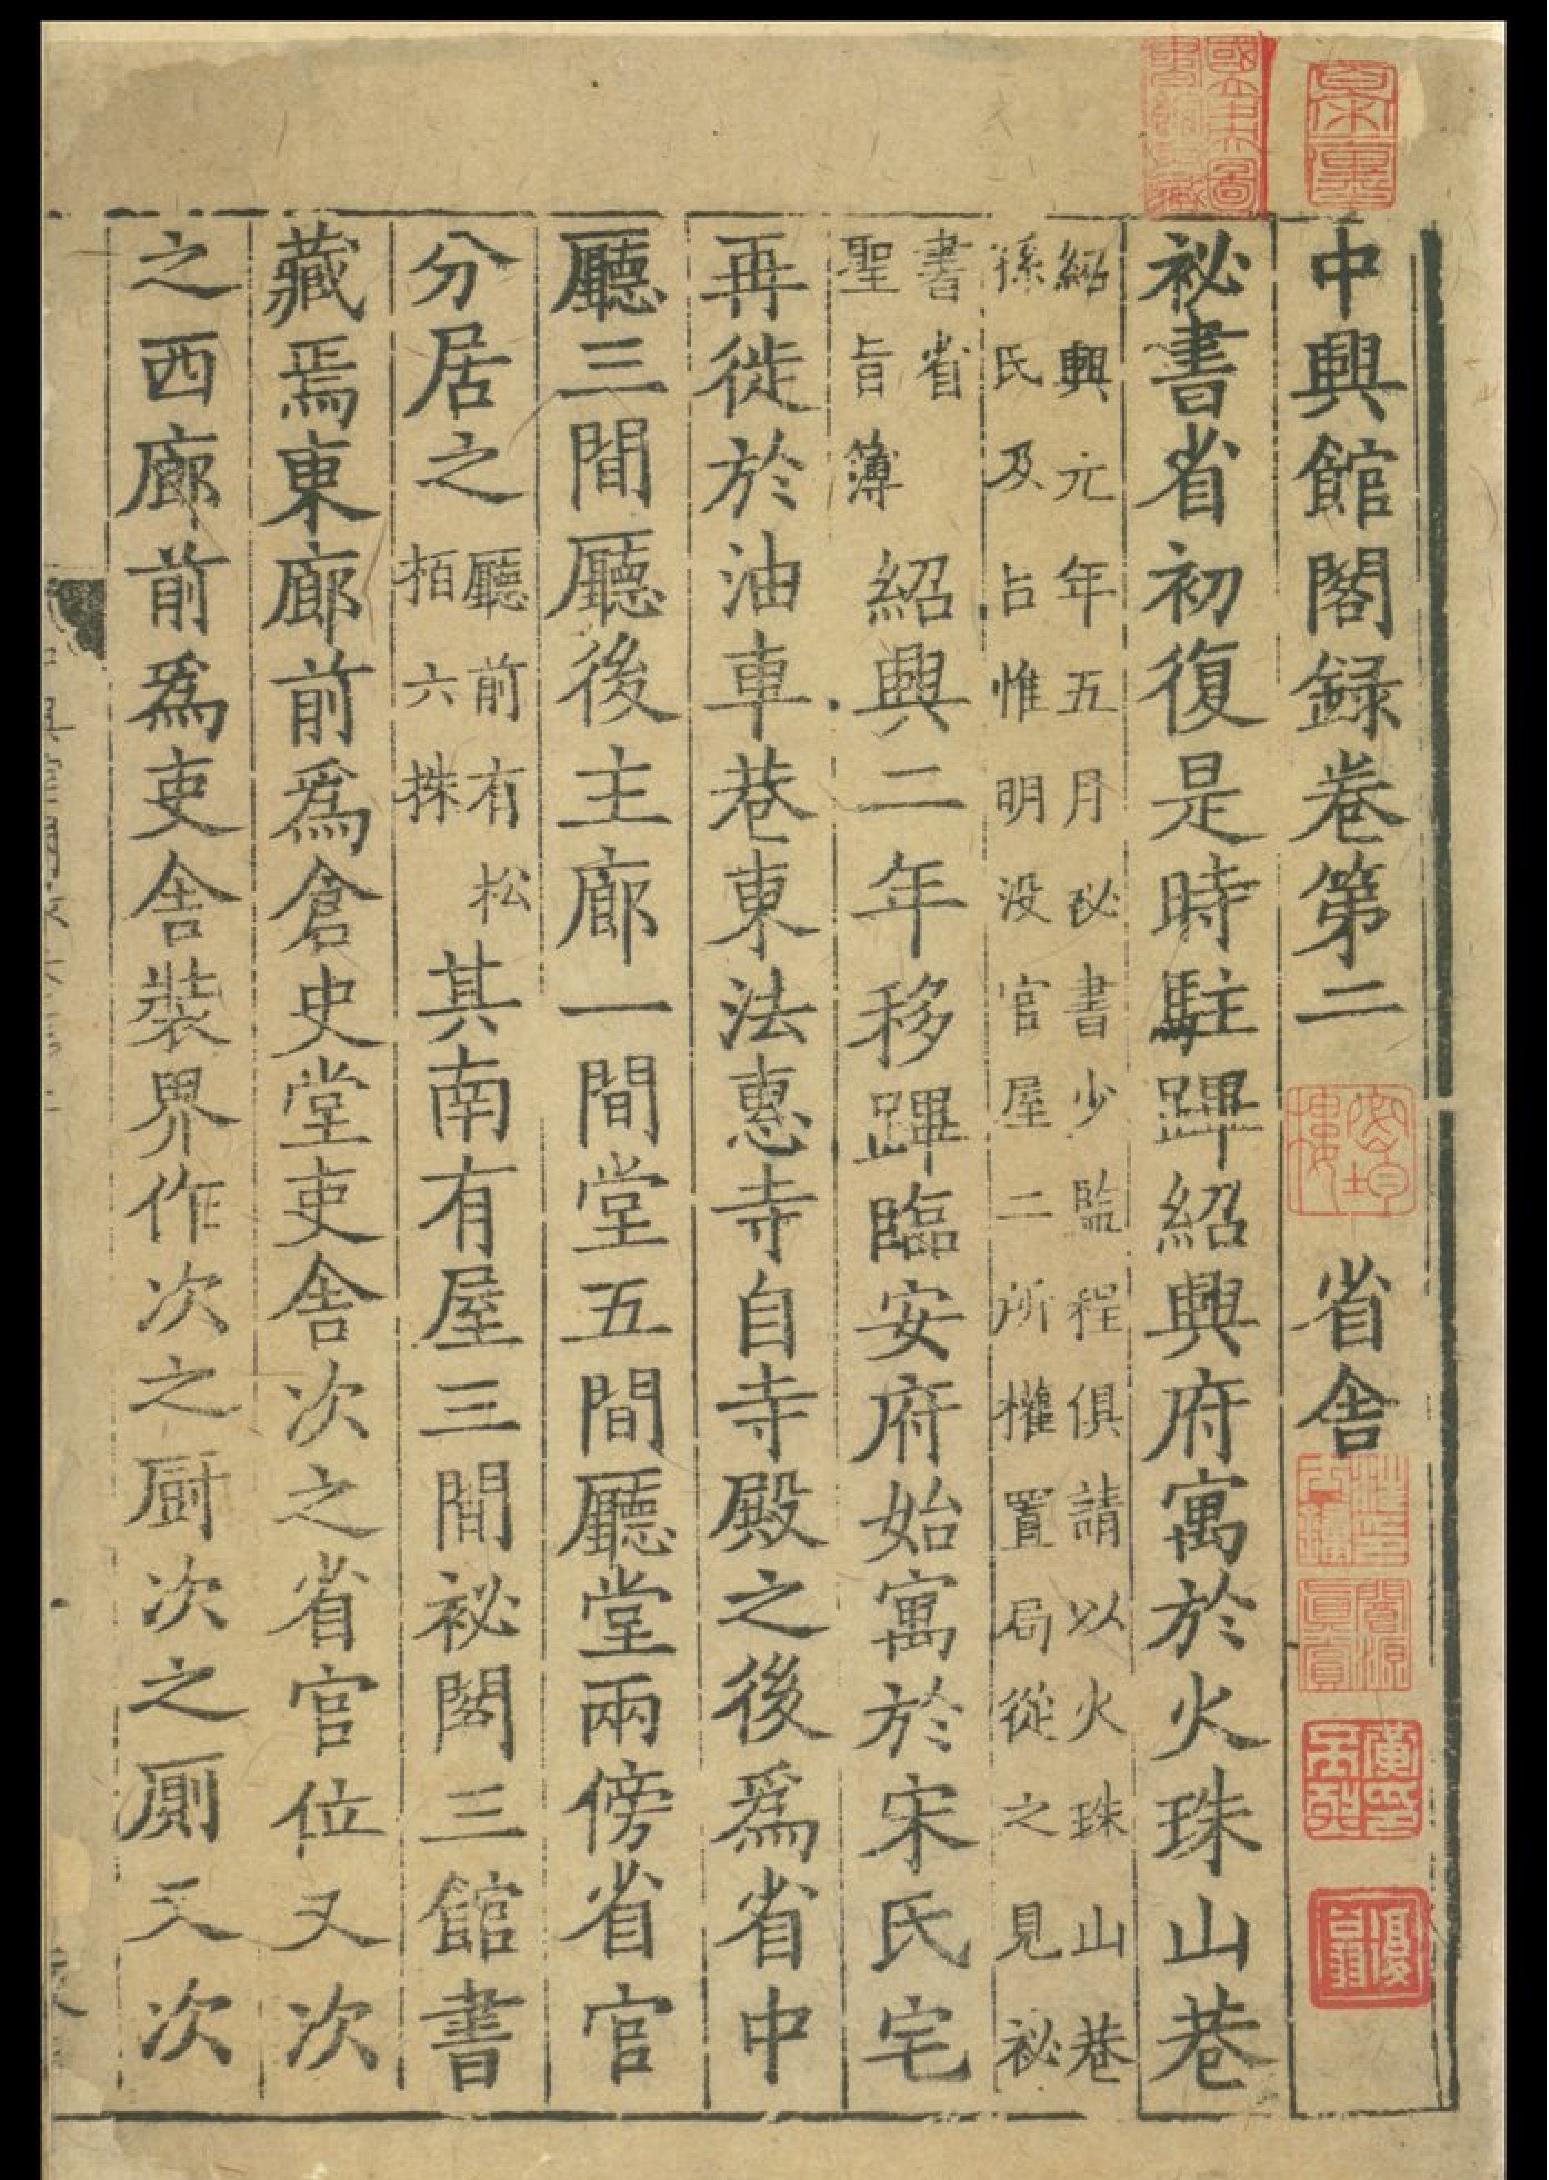 中興館閣録卷第二 省舍
祕書省初復是時駐蹕紹興府寓於火珠山巷
紹興元年五月祕書少監程俱請以火珠山巷
孫氏及占惟明没官屋二所權置局從之見祕
書省
聖旨簿
紹興二年移蹕臨安府始寓於宋氏宅
再徙於油車巷東法惠寺自寺殿之後爲省中
廳三間廳後主廊一間堂五間廳堂兩傍省官
分居之
廳前有松
栢六株
其南有屋三間祕閣三館書
藏焉東廊前爲倉史堂吏舍次之省官位又次
之西廊前爲吏舍裝界作次之厨次之厠又次